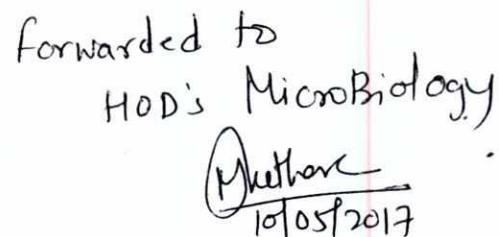 forwarded to
HOD's MicroBiology
10/05/2017